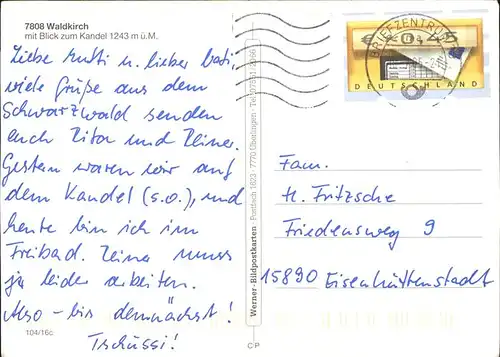 7808 Waldkirch
mit Blick zum Kandel 1243 m ü.M.
Liebe Mutti u. lieber Vati,
viele Grüße aus dem
Schwarzwald senden
euch Zita und Reiner.
Gestern waren wir auf
dem Kandel (s.o.), und
heute bin ich im
Freibad. Reiner muss
ja leider arbeiten.
Also - bis demnächst!
Tschüssi!
104/16c
Werner-Bildpostkarten · Postfach 1623 · 7770 Überlingen
C P
BRIEFZENTRUM
DEUTSCHLAND
Fam.
H. Fritzsche
Friedensweg 9
15890 Eisenhüttenstadt